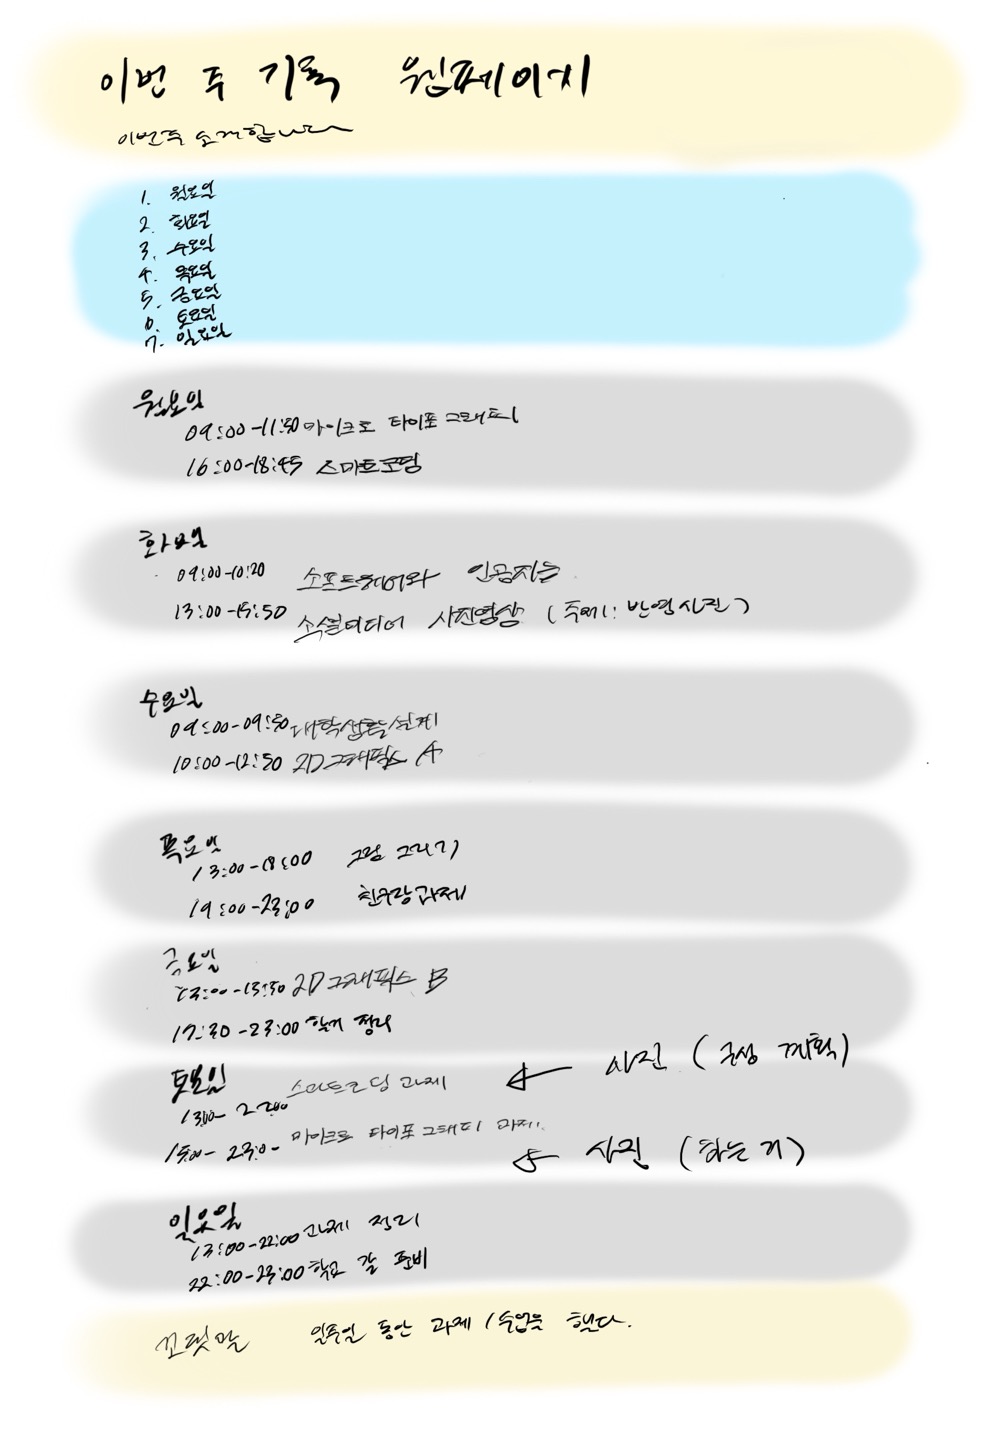 이번 주 기록 웹페이지
이번주 소개합니다
1. 월요일
2. 화요일
3. 수요일
4. 목요일
5. 금요일
6. 토요일
7. 일요일
월요일
09:00-11:50 마이크로 타이포그래피
16:00-18:45 스마트코딩
화요일
09:00-10:20 소프트웨어와 인공지능
13:00-15:50 소셜미디어 사진영상 (주제1: 반영사진)
수요일
09:00-09:50 대학생활설계
10:00-12:50 2D그래픽스 A
목요일
13:00-18:00 그림 그리기
19:00-23:00 친구랑 과제
금요일
13:00-15:50 2D그래픽스 B
17:30-23:00 필기 정리
토요일 스마트코딩 과제 ← 사진 (구상 계획)
13:00-
15:00-23:0- 마이크로 타이포그래피 과제 ← 사진 (하는거)
일요일
13:00-22:00 과제 정리
22:00-23:00 학교 갈 준비
꼬릿말 일주일 동안 과제/수업을 했다.